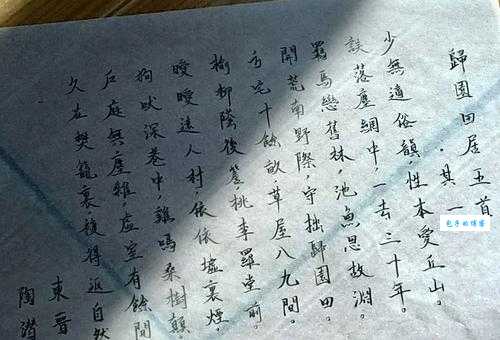 歸園田居五首
·其一
少無適俗韻,性本愛丘山。
誤落塵網中,一去三十年。
羈鳥戀舊林,池魚思故淵。
開荒南野際,守拙歸園田。
方宅十餘畝,草屋八九間。
榆柳蔭後簷,桃李羅堂前。
曖曖遠人村,依依墟裏煙。
狗吠深巷中,雞鳴桑樹顛。
戶庭無塵雜,虛室有餘閒
久在樊籠裏,復得返自然
東晉
陶潛